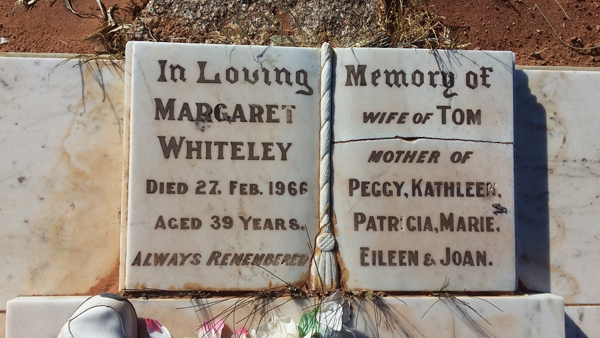 In Loving Memory of
MARGARET
WHITELEY
DIED 27. FEB. 1966
AGED 39 YEARS.
ALWAYS REMEMBERED
WIFE OF TOM
MOTHER OF
PEGGY, KATHLEEN,
PATRICIA, MARIE,
EILEEN & JOAN.